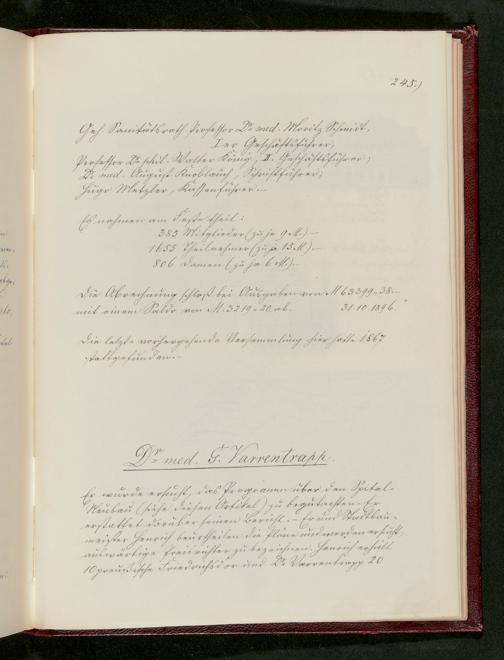 245.)
Geh. Sanitätsrath Professor Dr med. Moritz Schmidt,
Ier Geschäftsführer,
Professor Dr phil. Walter König, II. Geschäftsführer,
Dr med. August Knoblauch, Schriftführer,
Hugo Metzler, Kassenführer.
Es nahmen am Feste theil:
383 Mitglieder (zu je 9 M.)
1653 Theilnehmer (zu je 15 M.)
806 Damen (zu je 6 M.)
Die Abrechnung schloß bei Ausgaben von M 63399.38
mit einem Saldo von M. 3219.20 ab. 31.10.1896.
Die letzte vorhergehende Versammlung hier hatte 1867
stattgefunden.
Dr med. G. Varrentrapp.
Er wurde ersucht, das Programm über den Spital-
Neubau (siehe diesen Artikel) zu begutachten. Er
erstattet darüber seinen Bericht. Er und Stadtbau-
meister Henrich beurtheilen die Pläne und werden ersucht,
auswärtige Preisrichter zu bezeichnen. Henrich erhält
10 preußische Friedrichsdor und Dr Varrentrapp 20